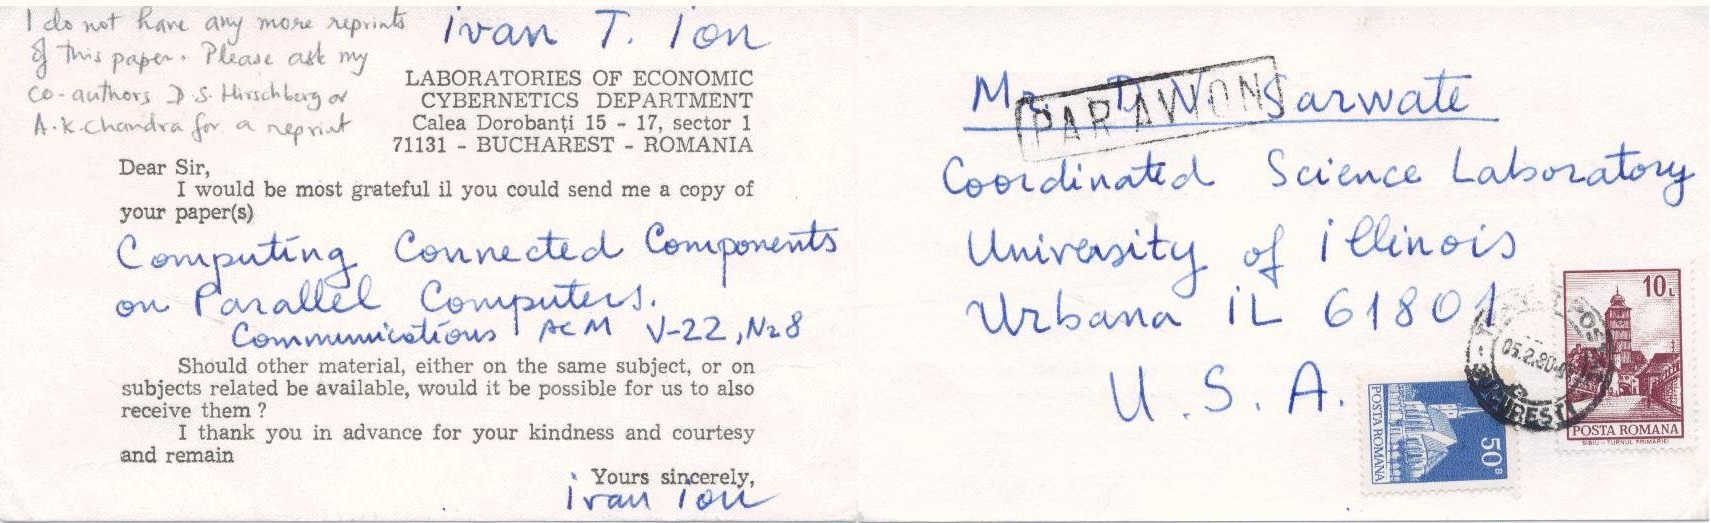 I do not have any more reprints
of this paper. Please ask my
co-authors D.S. Hirschberg or
A.K. Chandra for a reprint
Ivan T. Ion
LABORATORIES OF ECONOMIC
CYBERNETICS DEPARTMENT
Calea Dorobanți 15 - 17, sector 1
71131 - BUCHAREST - ROMANIA
Dear Sir,
I would be most grateful il you could send me a copy of
your paper(s)
Computing Connected Components
on Parallel Computers.
Communications ACM V-22, No 8
Should other material, either on the same subject, or on
subjects related be available, would it be possible for us to also
receive them ?
I thank you in advance for your kindness and courtesy
and remain
Yours sincerely,
Ivan Ion
Mr. D.V. Sarwate
PAR AVION
Coordinated Science Laboratory
University of Illinois
Urbana IL 61801
U.S.A.
10 L
POSTA ROMANA
SIBIU - TURNUL PRIMARIEI
50 B
POSTA ROMANA
05.2.80
BUCURESTI